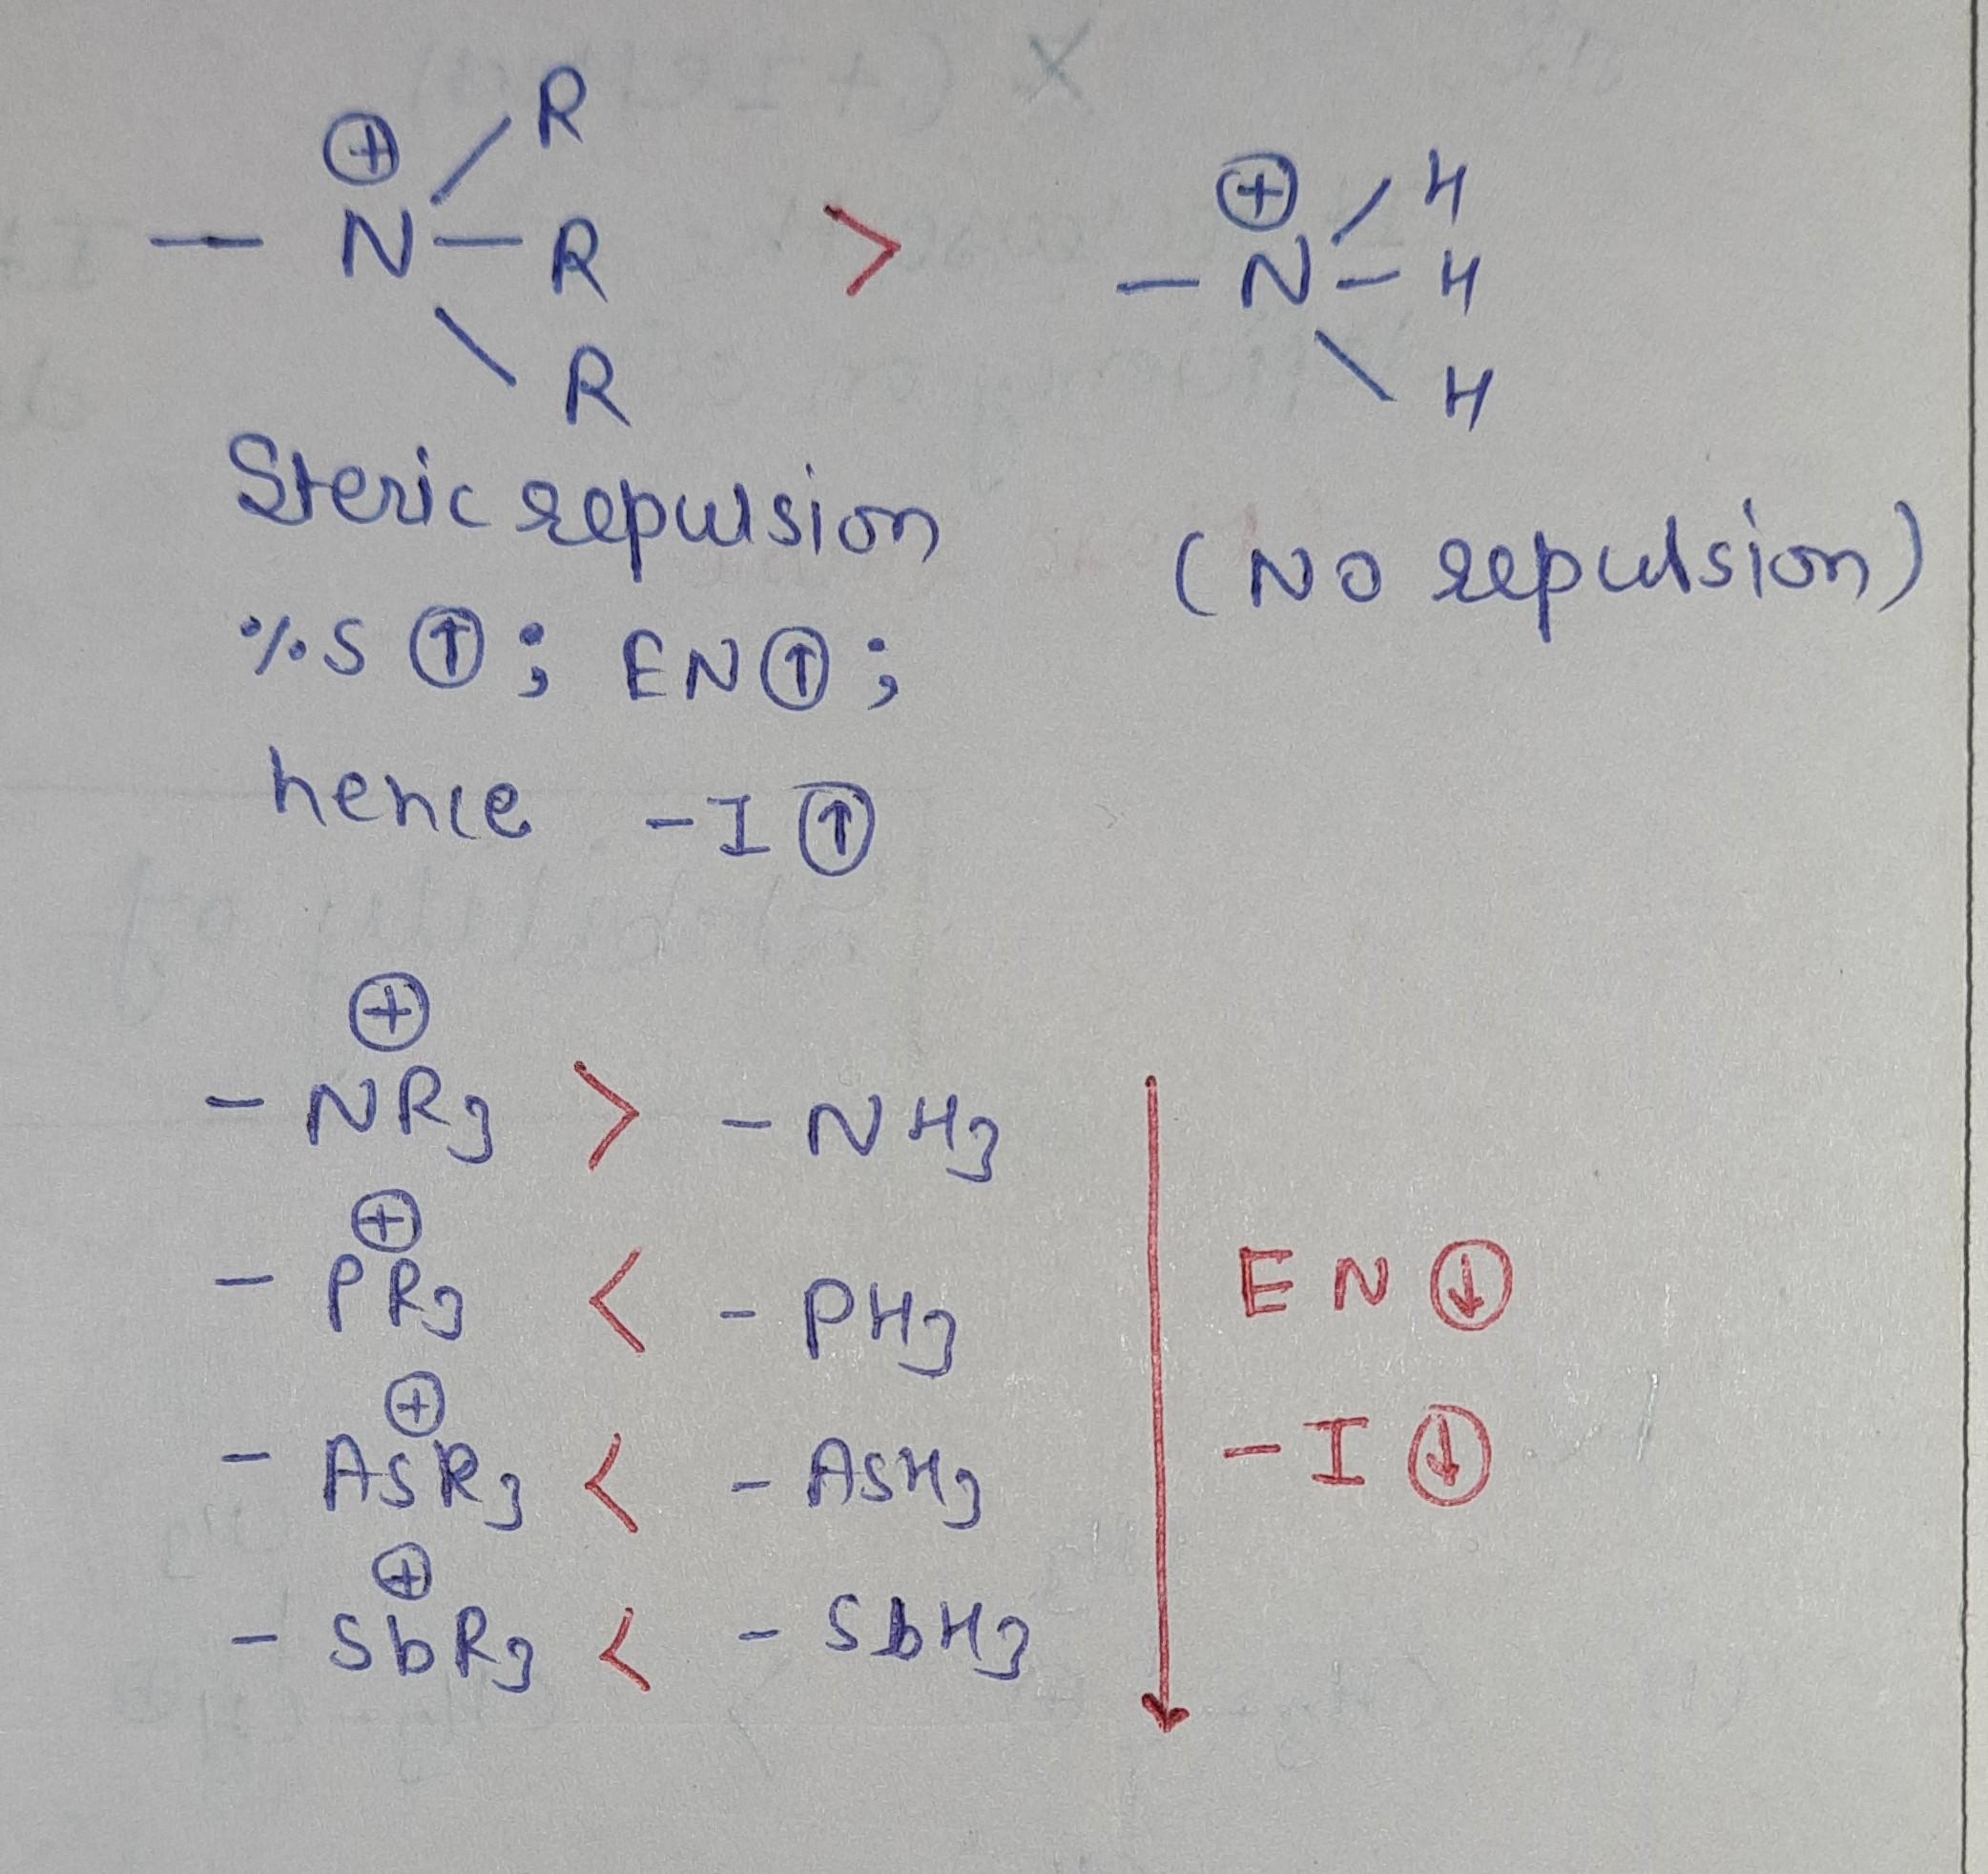 ⊕ R
— N — R > ⊕ H
R — N — H
H
Steric repulsion (No repulsion)
%S ↑ ; EN ↑ ;
hence -I ↑
⊕
- NR3 > - NH3
⊕
- PR3 < - PH3
EN ↓
⊕
- AsR3 < - AsH3
-I ↓
⊕
- SbR3 < - SbH3